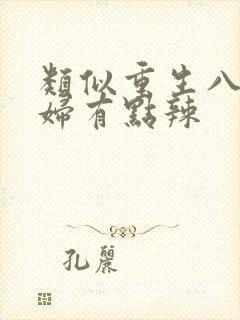 類似重生八
婦有點辣
孔麗